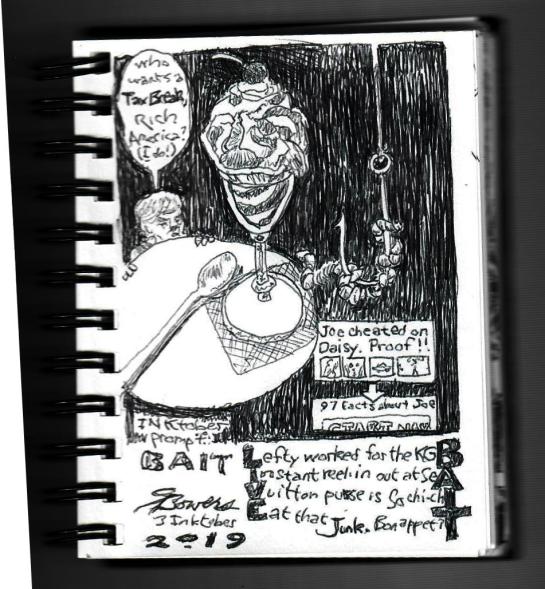 who
wants a
Tax Break,
Rich
America?
(I do!)
Joe cheated on
Daisy. Proof!!
97 facts about Joe
START NOW
INKtober
Prompt:
BAIT
Lefty worked for the KGB
Instant reel in out at SeA
Vuitton purse is So chi-chI
Eat that Junk. Bon appeT?
Bowers
3 Inktober
2019